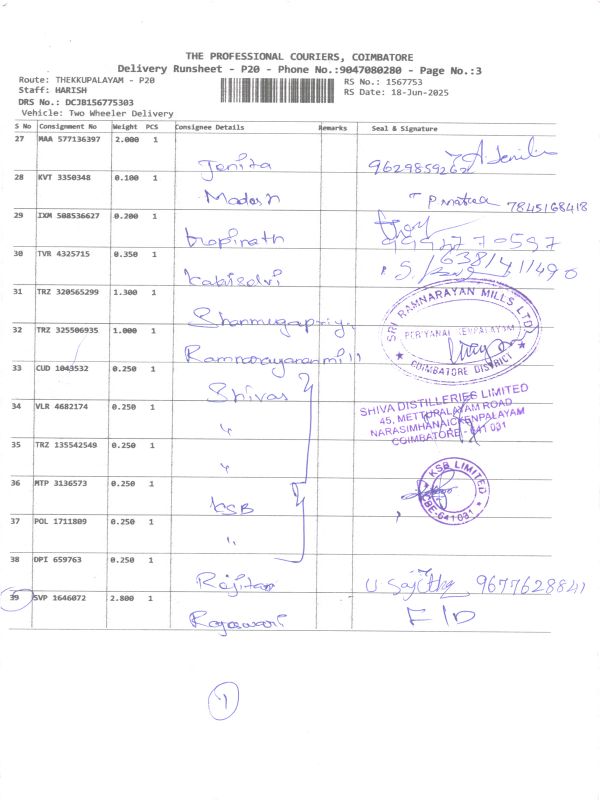 THE PROFESSIONAL COURIERS, COIMBATORE
Delivery Runsheet - P20 - Phone No.:9047080280 - Page No.:3
Route: THEKKUPALAYAM - P20
RS No.: 1567753
Staff: HARISH
RS Date: 18-Jun-2025
DRS No.: DCJB156775303
Vehicle: Two Wheeler Delivery
S No Consignment No Weight PCS Consignee Details Remarks Seal & Signature
27 MAA 577136397 2.000 1
Jenita 9629859262
28 KVT 3350348 0.100 1
Madesh 7845168418
29 IXM 508536627 0.200 1
Gopinath
30 TVR 4325715 0.350 1
Kabiselvi 6381411490
31 TRZ 320565299 1.300 1
Shanmugapriya
SRI RAMNARAYAN MILLS LTD
PERIYANAICKENPALAYAM
COIMBATORE DISTRICT
32 TRZ 325506935 1.000 1
Ramnarayanan mill
33 CUD 1043532 0.250 1
Shivas
SHIVA DISTILLERIES LIMITED
45, METTUPALAYAM ROAD
NARASIMHANAICKENPALAYAM
COIMBATORE - 641 031
34 VLR 4682174 0.250 1
"
35 TRZ 135542549 0.250 1
"
36 MTP 3136573 0.250 1
KSB
KSB LIMITED
CBE-641031
37 POL 1711809 0.250 1
"
38 DPI 659763 0.250 1
9677628841
39 SVP 1646072 2.800 1
F/D
1